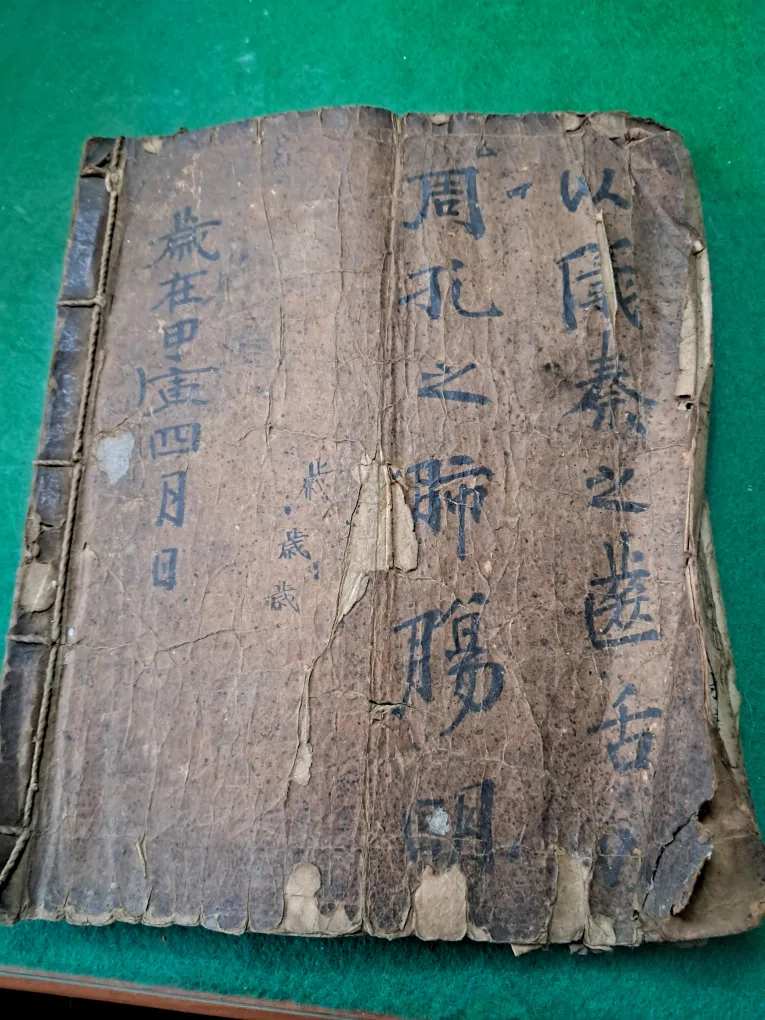 以儀秦之齒舌
周孔之肺腸明
歲
歲
歲在甲寅四月日